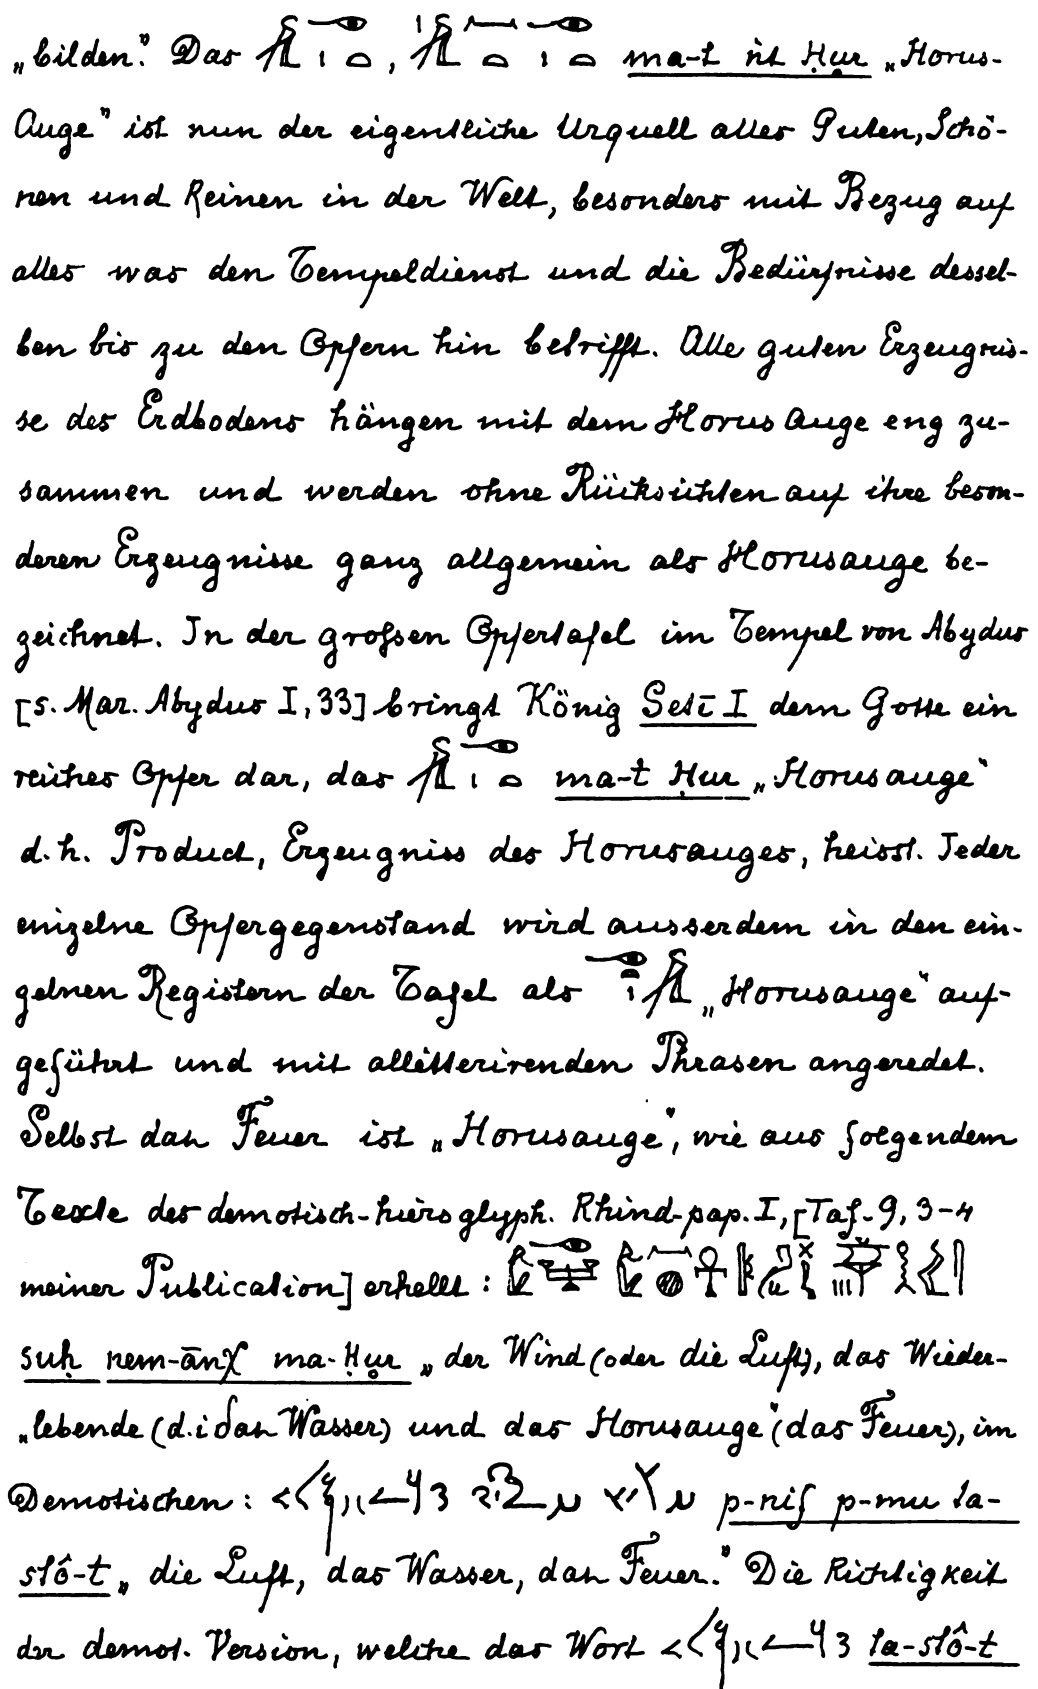 „bilden.” Das , ma-t ṅt Ḥur „Horus-
Auge” ist nun der eigentliche Urquell alles Guten, Schö-
nen und Reinen in der Welt, besonders mit Bezug auf
alles was den Tempeldienst und die Bedürfnisse dessel-
ben bis zu den Opfern hin betrifft. Alle guten Erzeugnis-
se des Erdbodens hängen mit dem Horus Auge eng zu-
sammen und werden ohne Rücksichten auf ihre beson-
deren Erzeugnisse ganz allgemein als Horusauge be-
zeichnet. In der grofsen Opfertafel im Tempel von Abydus
[s. Mar. Abydus I, 33] bringt König Setī I dem Gotte ein
reiches Opfer dar, das ma-t Ḥur „Horusauge”
d. h. Product, Erzeugniss des Horusauges, heisst. Jeder
einzelne Opfergegenstand wird ausserdem in den ein-
zelnen Registern der Tafel als „Horusauge” auf-
geführt und mit allitterirenden Phrasen angeredet.
Selbst das Feuer ist „Horusauge”, wie aus folgendem
Texte des demotisch-hieroglyph. Rhind-pap. I, [Taf. 9, 3-4
meiner Publication] erhellt :
suḥ nem-ānχ ma-Ḥur „der Wind (oder die Luft), das Wieder-
„lebende (d. i. das Wasser) und das Horusauge” (das Feuer), im
Demotischen : p-nif p-mu ta-
stô-t „die Luft, das Wasser, das Feuer.” Die Richtigkeit
der demot. Version, welche das Wort ta-stô-t